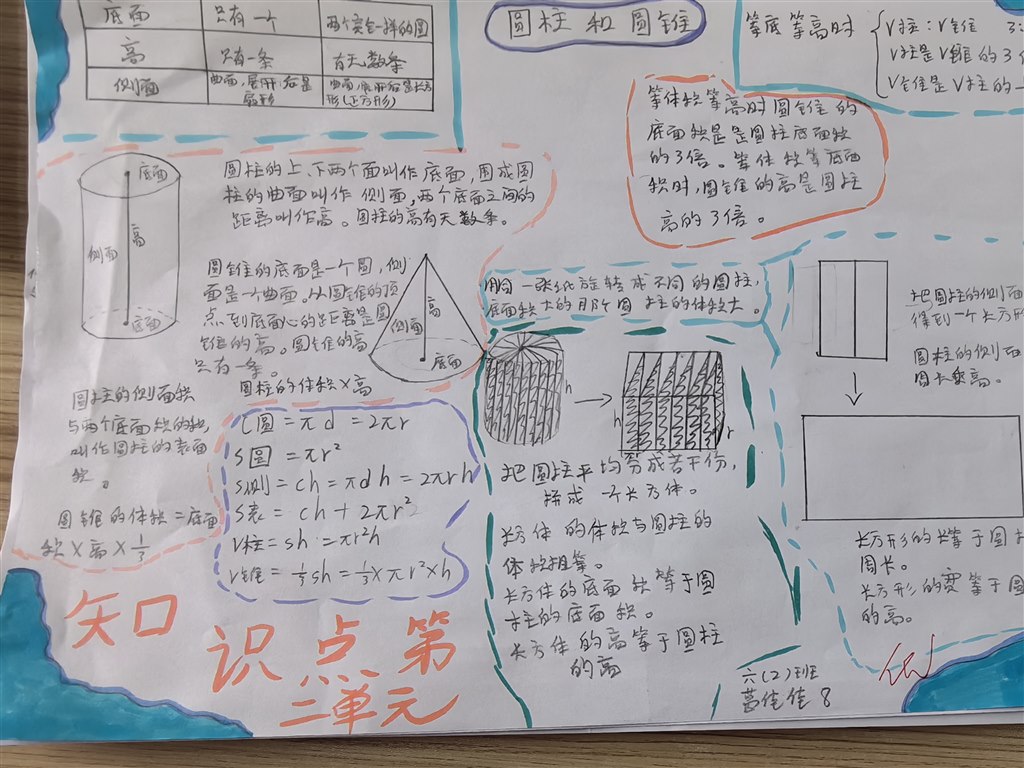 底面 只有一个 两个完全一样的圆
高 只有一条 有无数条
侧面 曲面,展开后是扇形 曲面,展开后是长方形(正方形)
圆柱和圆锥
等底等高时
V柱:V锥 3:
V柱是V锥的3
V锥是V柱的
等体积等高时圆锥的
底面积是是圆柱底面积
的3倍。等体积等底面
积时,圆锥的高是圆柱
高的3倍。
底面
侧面
高
底面
圆柱的上、下两个面叫作底面,围成圆
柱的曲面叫作侧面,两个底面之间的
距离叫作高。圆柱的高有无数条。
圆锥的底面是一个圆,侧
面是一个曲面。从圆锥的顶
点到底面心的距离是圆
锥的高。圆锥的高
只有一条。
高
侧面
底面
圆柱的体积×高
圆柱的侧面积
与两个底面积的和
叫作圆柱的表面
积。
圆锥的体积=底面
积×高×1/3
C圆=πd=2πr
S圆=πr²
S侧=ch=πdh=2πrh
S表=ch+2πr²
V柱=sh=πr²h
V锥=1/3sh=1/3×πr²×h
用同一张纸旋转成不同的圆柱,
底面积大的那个圆柱的体积大。
h
h
r
把圆柱平均分成若干份,
拼成一个长方体。
长方体的体积与圆柱的
体积相等。
长方体的底面积等于圆
柱的底面积。
长方体的高等于圆柱
的高
把圆柱的侧面
得到一个长方形
圆柱的侧面
周长乘高。
长方形的长等于圆
周长。
长方形的宽等于圆
的高。
知
识点第
二单元
六(2)班
佳佳 8